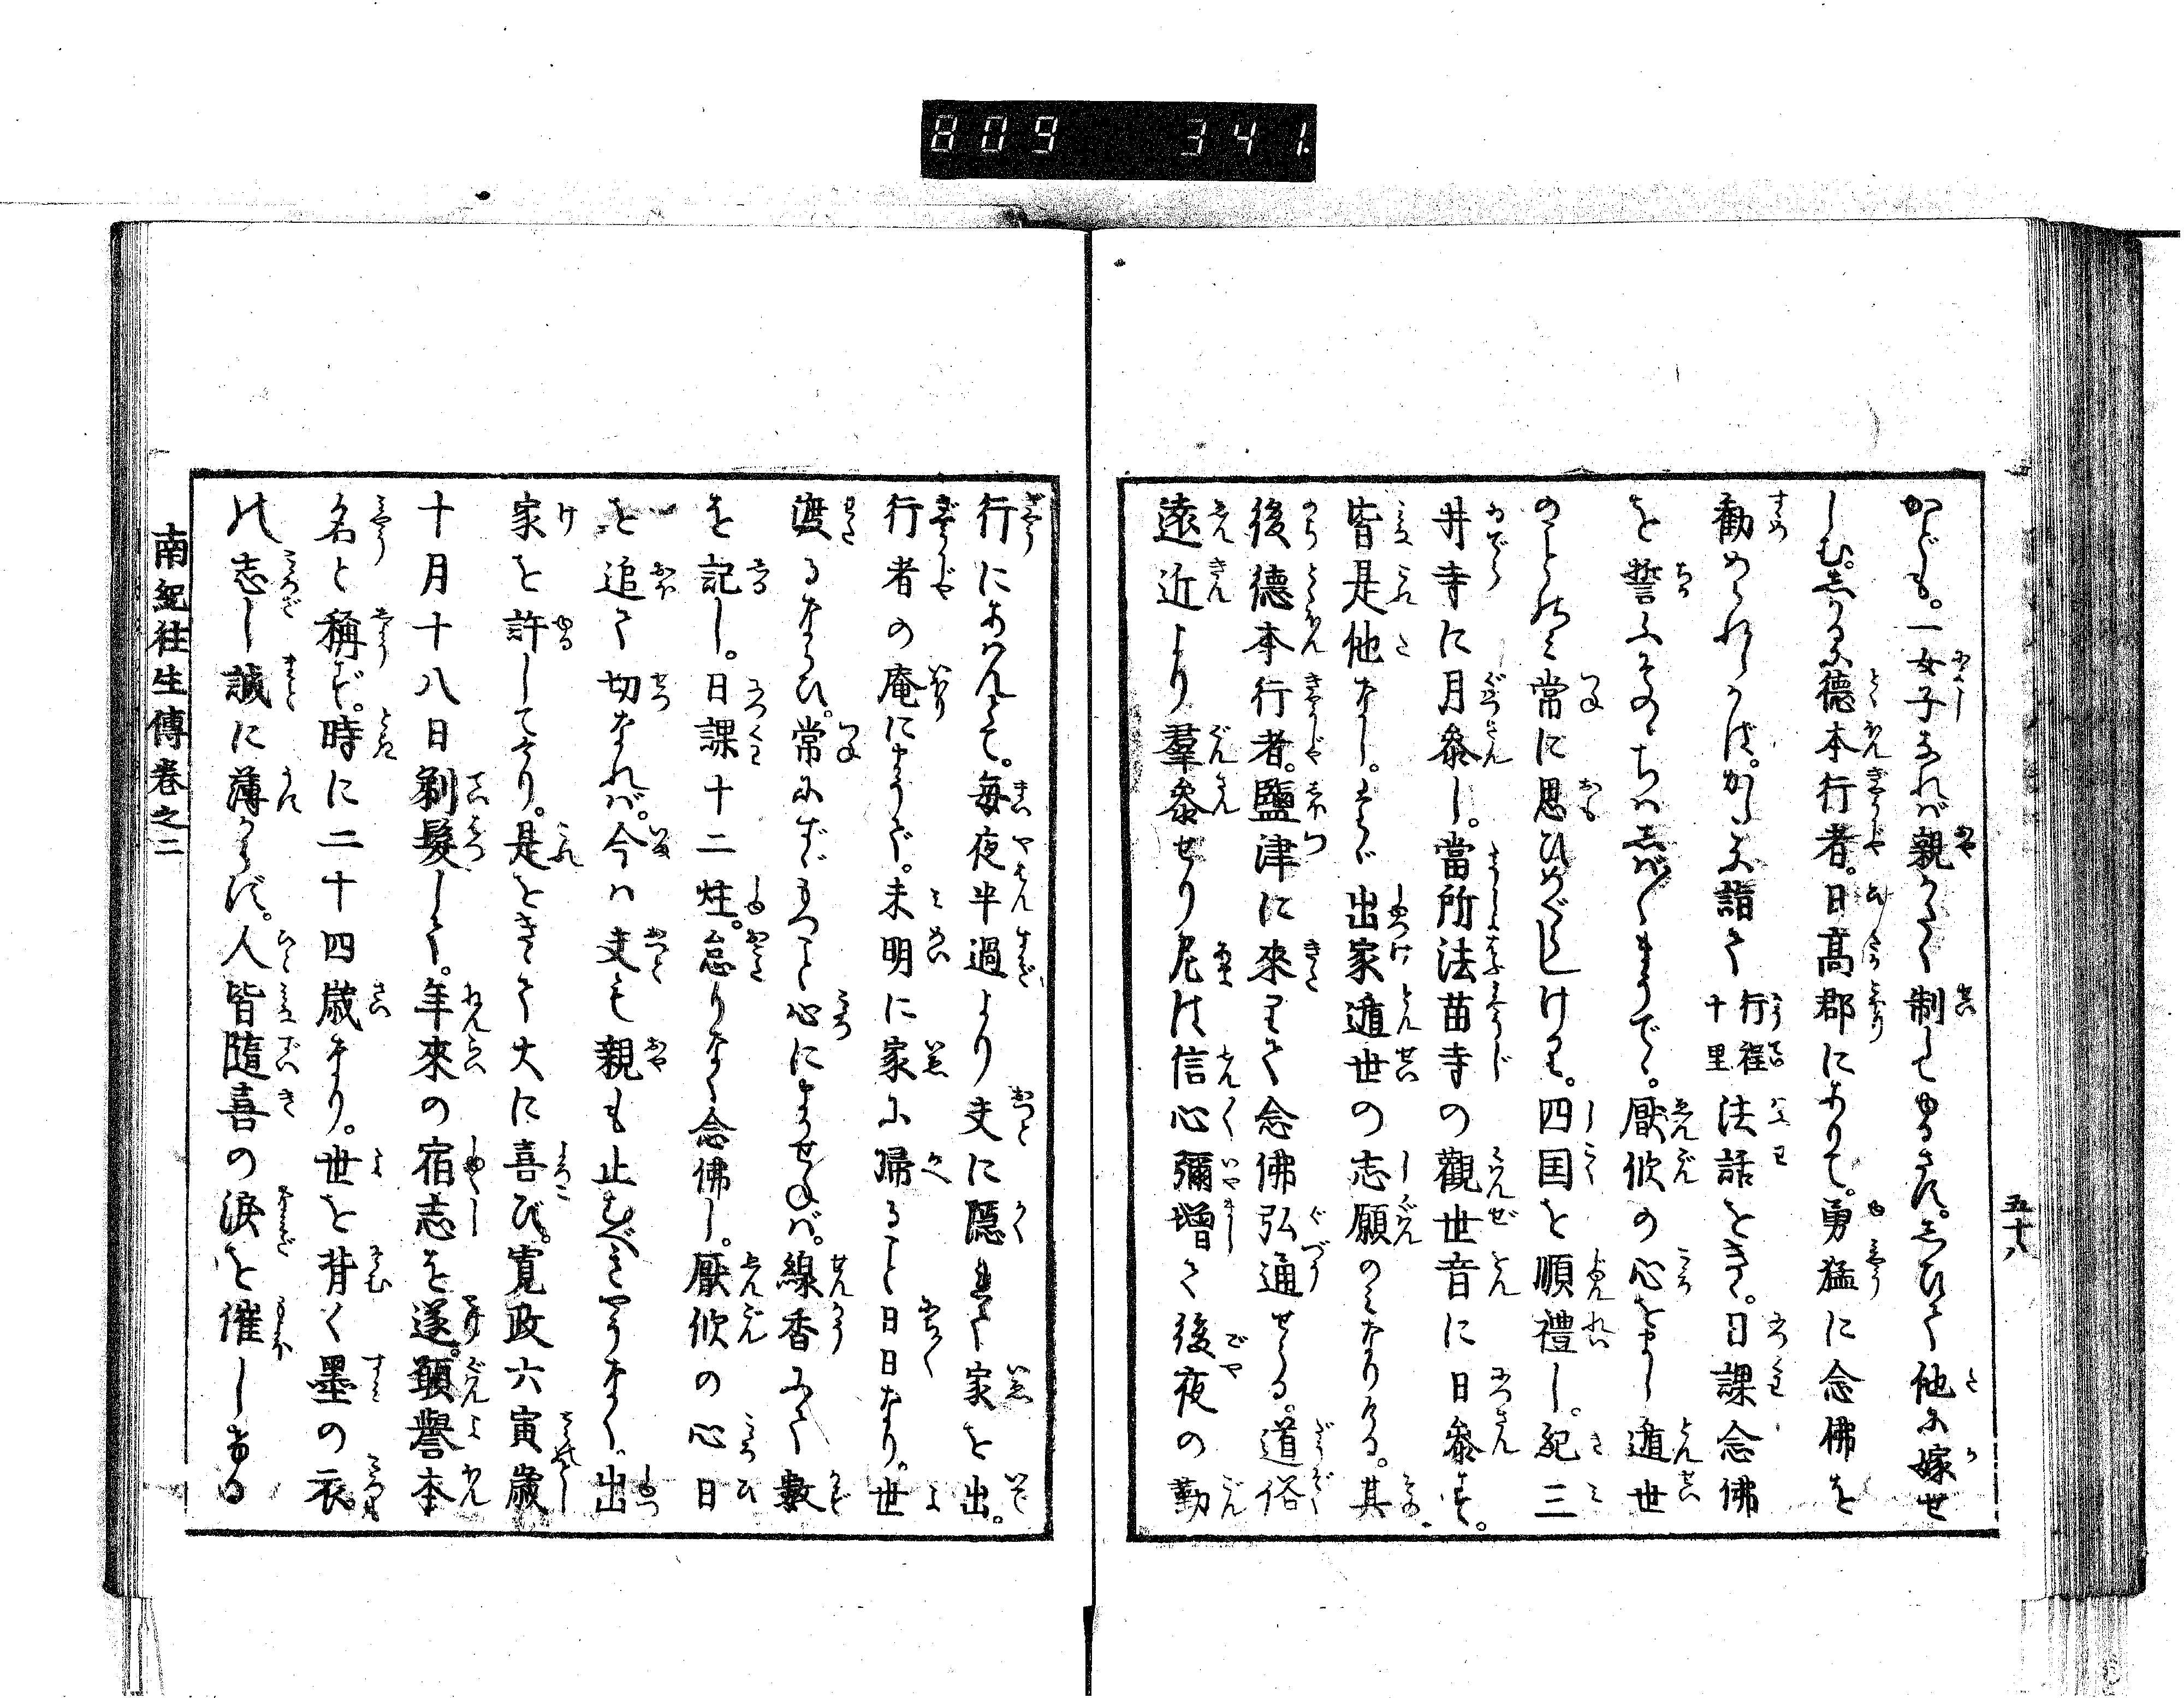 809 341.
五十八
かども。一女子なれば親かたく制してゆるさず。しひて他に嫁せ
しむ。しかるに德本行者。日高郡にありて。勇猛に念佛を
勸められしかば。かしこに詣て行程十里法話をきゝ。日課念佛
を誓ふ。そのゝちはしば〱まうでゝ。厭欣の心をまし遁世
のことのみ常に思ひめぐらしけり。四国を順禮し。紀三
井寺に月參し。當所法苗寺の觀世音に日參す。
皆是他なし。たゞ出家遁世の志願のみなりける。其
後德本行者。鹽津に來りて念佛弘通せらる。道俗
遠近より羣參せり尼は信心彌增て後夜の勤
行にあはんとて。每夜半過より夫に隱れて家を出。
行者の庵にまうで。未明に家に歸ること日日なり。世
渡るならひ。常に心にまかせねば。線香にて數
を記し。日課十二炷。怠りなく念佛し。厭欣の心日
を追て切なれば。今は夫も親も止むべきやうなく。出
家を許してけり。是をきゝて大に喜び。寬政六寅歲
十月十八日剃髮して。年來の宿志を遂。願譽本
名と稱ず。時に二十四歲なり。世を背く墨の衣。
の志し誠に薄からず。人皆隨喜の淚を催しける
南紀往生傳卷之二